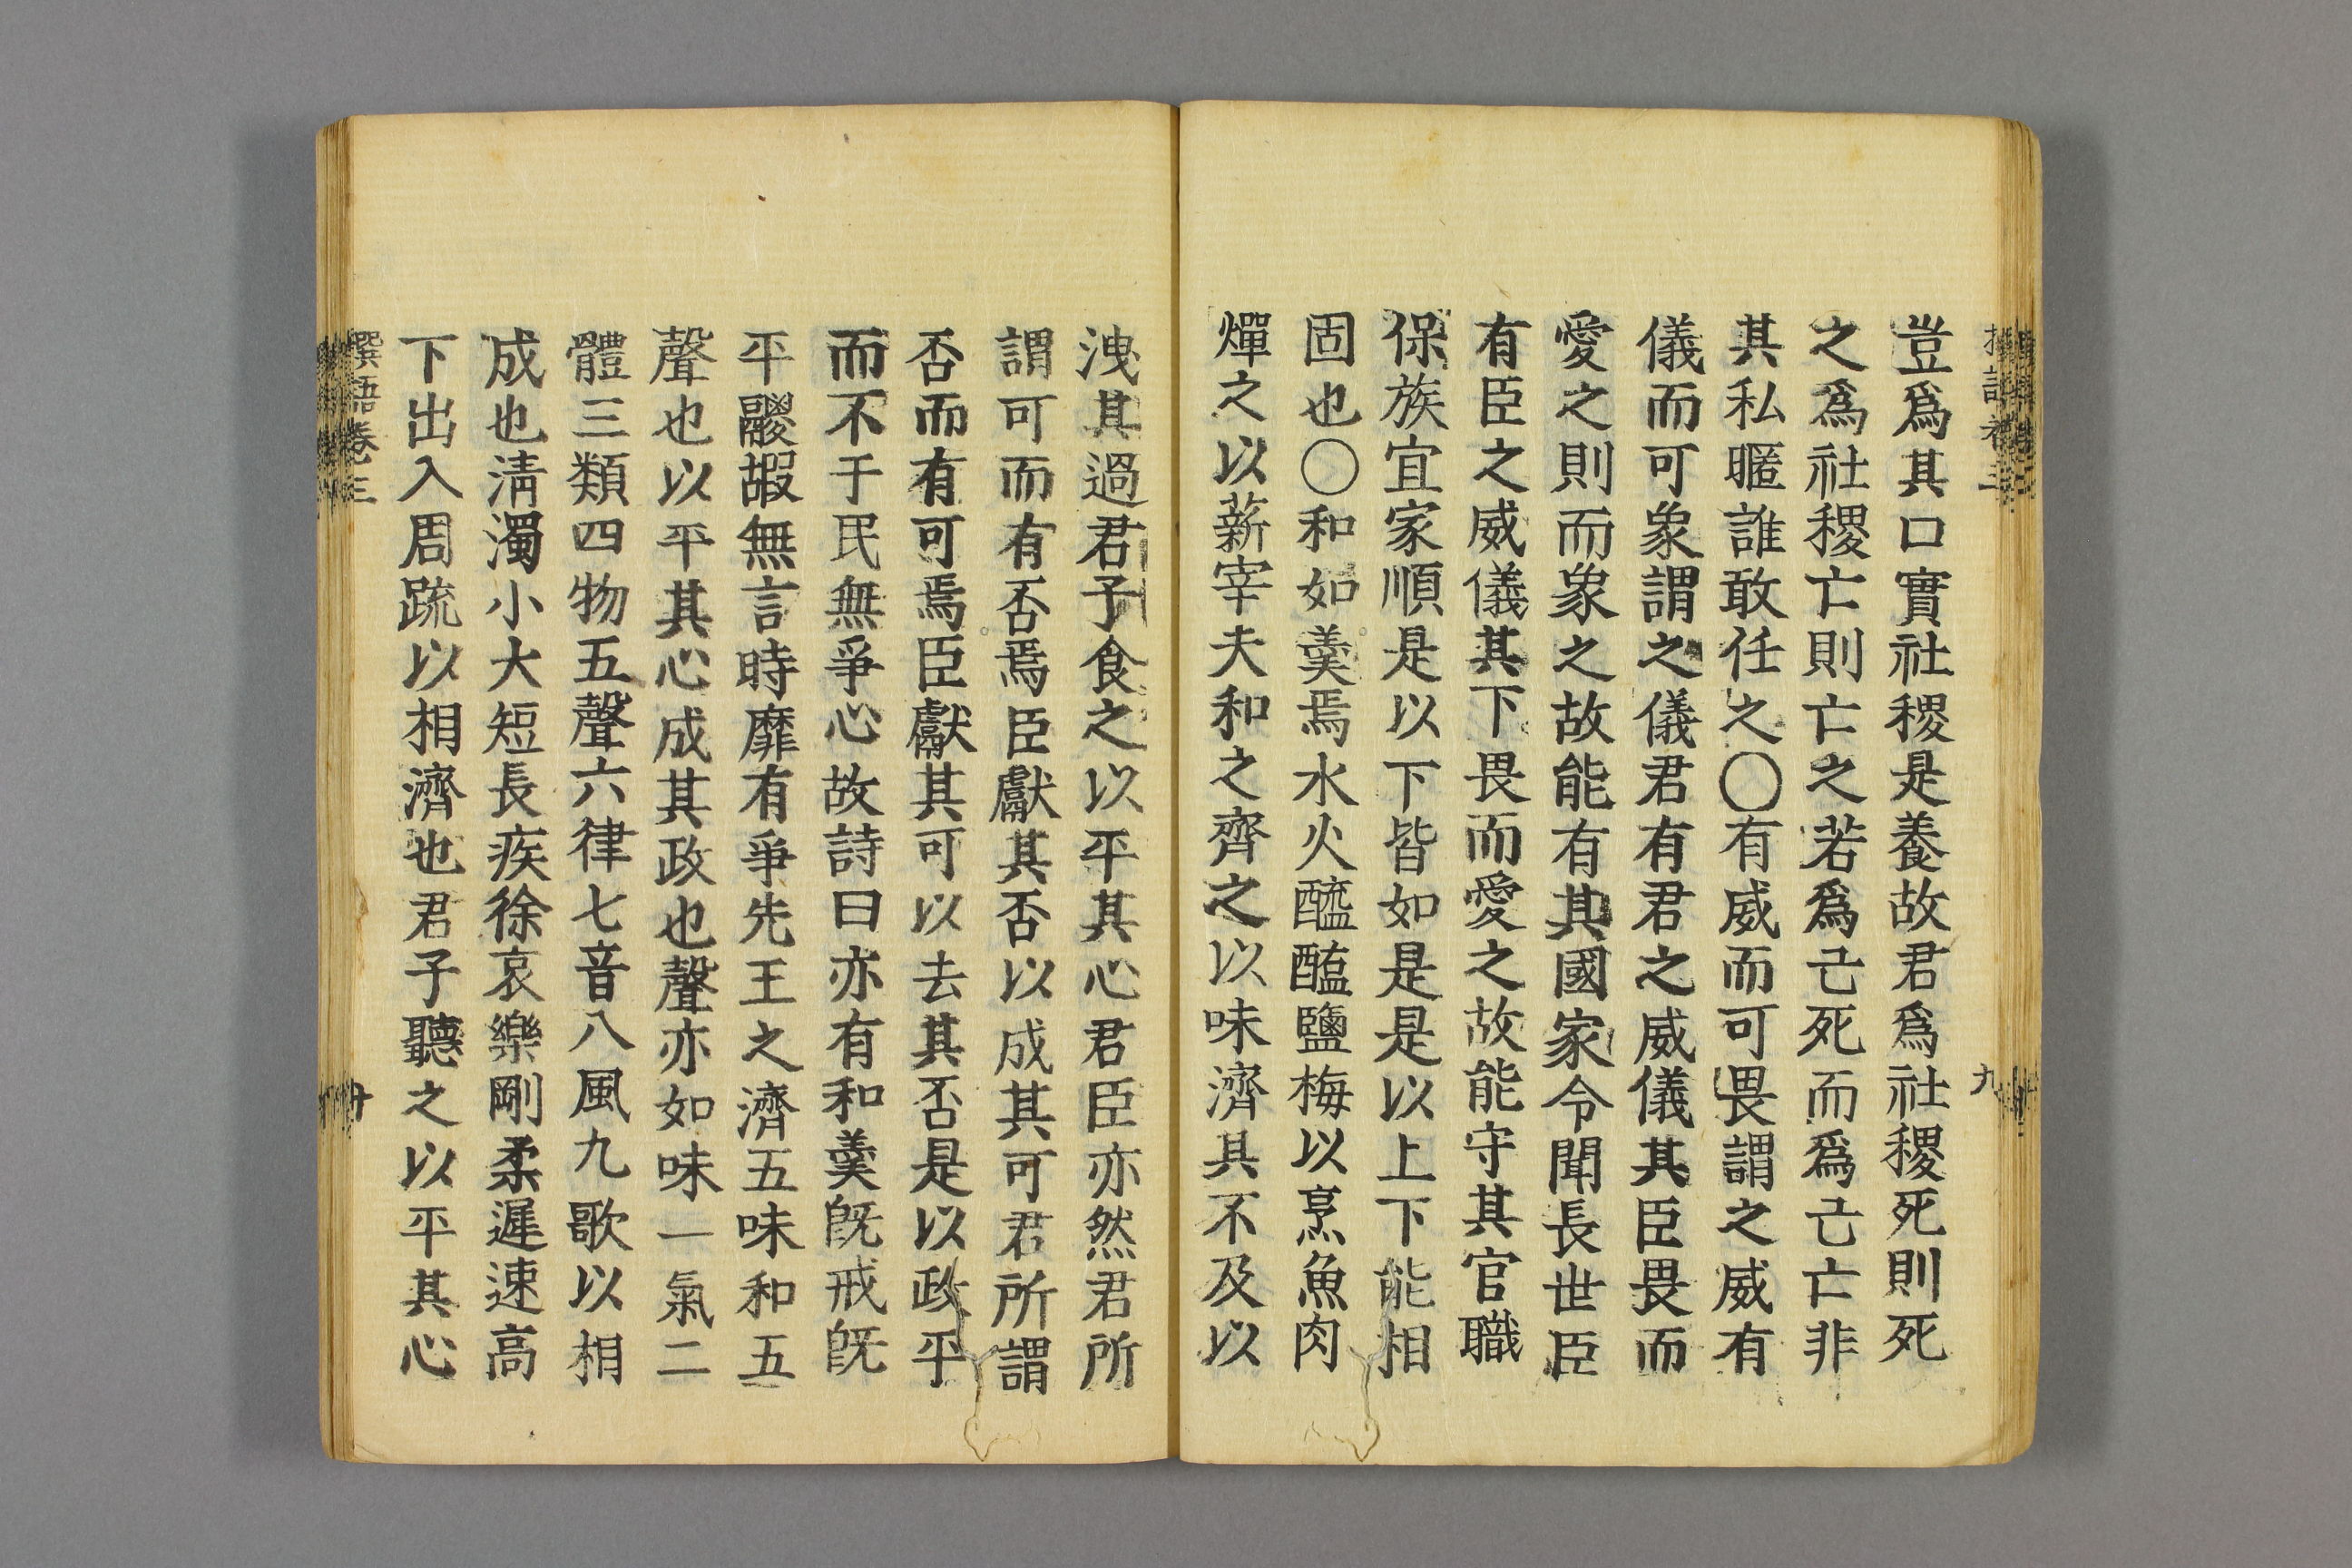 豈爲其口實社稷是養故君爲社稷死則死
之爲社稷亡則亡之若爲己死而爲己亡非
其私暱誰敢任之〇有威而可畏謂之威有
儀而可象謂之儀君有君之威儀其臣畏而
愛之則而象之故能有其國家令聞長世臣
有臣之威儀其下畏而愛之故能守其官職
保族宜家順是以下皆如是是以上下能相
固也〇和如羹焉水火醯醢鹽梅以烹魚肉
燀之以薪宰夫和之齊之以味濟其不及以
洩其過君子食之以平其心君臣亦然君所
謂可而有否焉臣獻其否以成其可君所謂
否而有可焉臣獻其可以去其否是以政平
而不于民無爭心故詩曰亦有和羹旣戒旣
平鬷嘏無言時靡有爭先王之濟五味和五
聲也以平其心成其政也聲亦如味一氣二
體三類四物五聲六律七音八風九歌以相
成也淸濁小大短長疾徐哀樂剛柔遲速高
下出入周疏以相濟也君子聽之以平其心
撰語卷三